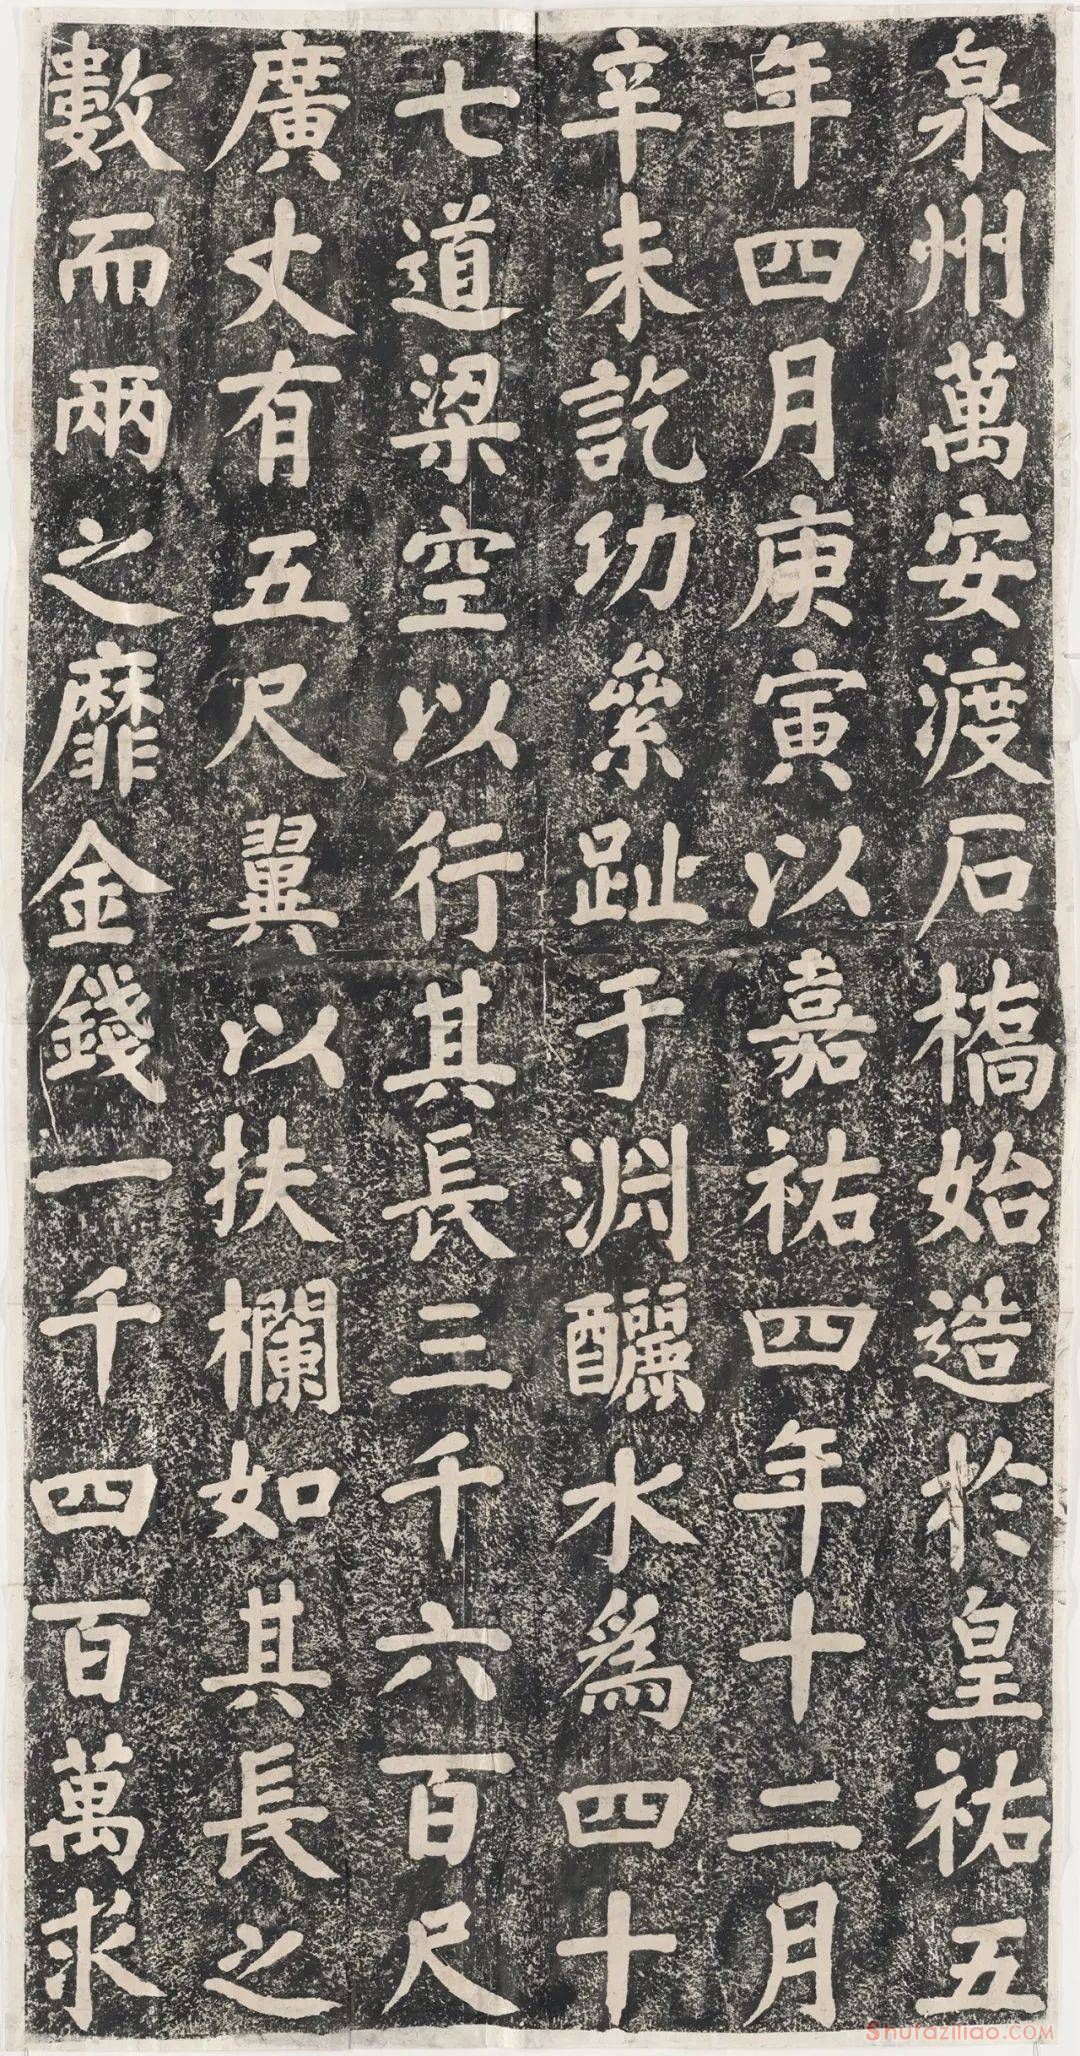 泉州萬安渡石橋始造於皇祐五
年四月庚寅以嘉祐四年十二月
辛未訖功絫趾于淵釃水為四十
七道梁空以行其長三千六百尺
廣丈有五尺翼以扶欄如其長之
數而兩之靡金錢一千四百萬求
Shufaziliao.COM